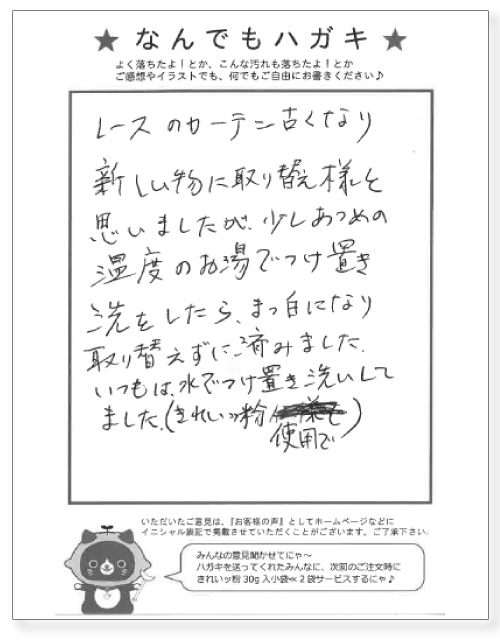 ★ なんでもハガキ ★
よく落ちたよ！とか、こんな汚れも落ちたよ！とか
ご感想やイラストでも、何でもご自由にお書きください♪
レースのカーテン古くなり
新しい物に取り替え様と
思いましたが、少しあつめの
温度のお湯でつけ置き
洗をしたら、まっ白になり
取り替えずに済みました。
いつもは、水でつけ置き洗いして
ました。(きれいッ粉
使用で)
いただいたご意見は、『お客様の声』としてホームページなどに
イニシャル表記で掲載させていただくことがございます。ご了承下さい。
みんなの意見聞かせてにゃ～
ハガキを送ってくれたみんなに、次回のご注文時に
きれいッ粉 30g 入小袋≪２袋サービスするにゃ♪